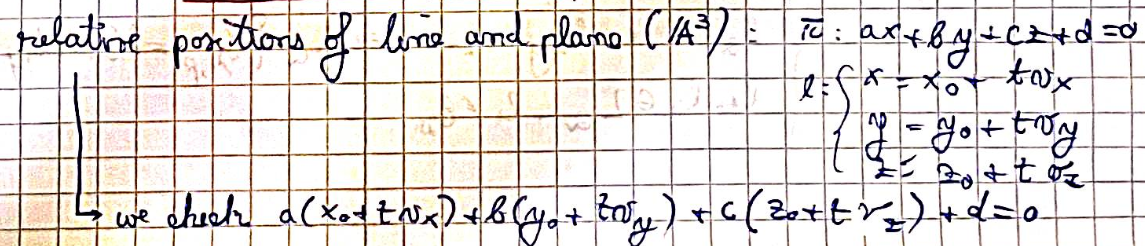 relative positions of line and plane (𝔸³): π: ax+by+cz+d=0
l: { x = x₀ + tvₓ
y = y₀ + tv_y
z = z₀ + tv_z
↳ we check a(x₀+tvₓ)+b(y₀+tv_y)+c(z₀+tv_z)+d=0